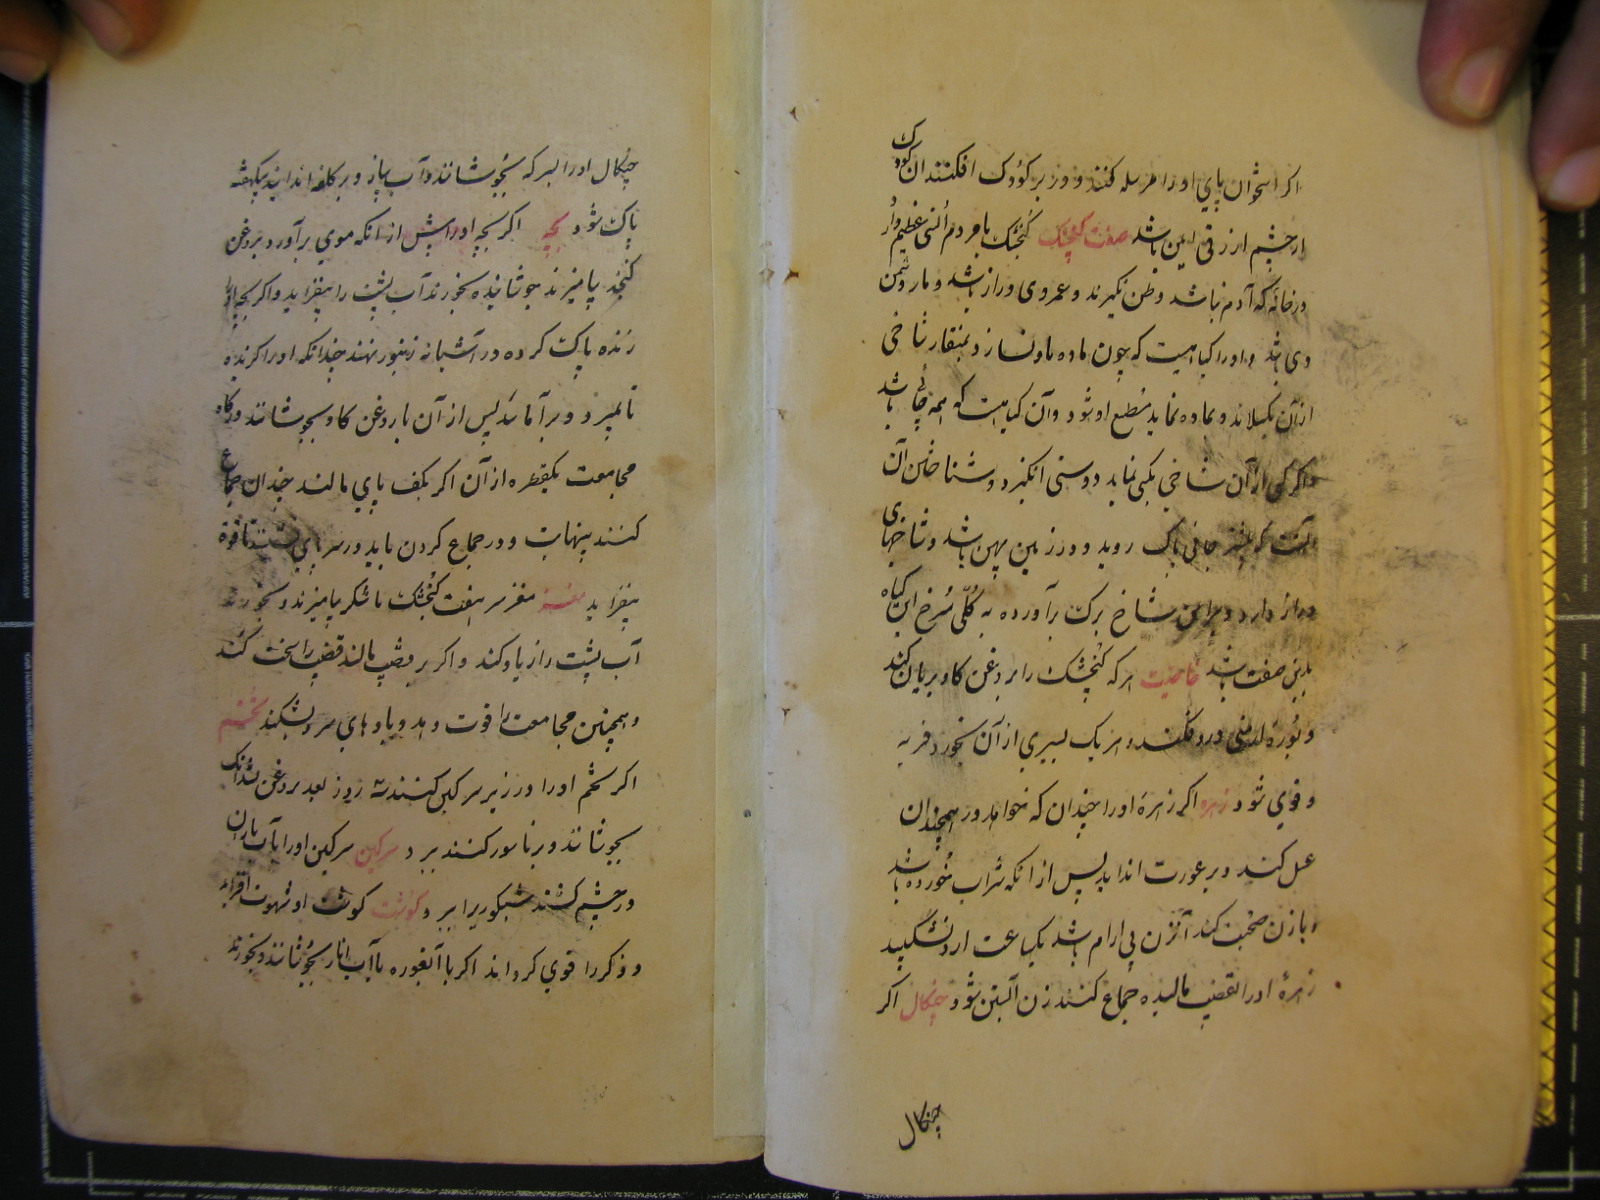 اکر استخوان پای او را مرسله کنند و در بر کودک افکنند ان کودک
از چشم ازرقی ایمن باشد صفت کنجشک کنجشک با مردم انسی عظیم دارد
در خانه که آدم نباشد وطن نکیرند و عمر وی دراز باشد و مار دشمن
وی باشد و او را کیاهیست که چون ماده با او نسازد بمنقار شاخی
از آن بکسلاند و بماده نماید مطیع او شود و آن کیاهیست که همه جائی باشد
و اکر کسی از آن شاخی بکسی نماید دوستی انکیزد و شناختن آن
آنست که بیشتر جائی پاک روید و در زمین پهن باشد و شاخهای
دراز دارد و بر این شاخ برک برآورده به کلی سرخ این کیاه
باین صفت باشد خاصیت هر که کنجشک را بر روغن کاو بریان کند
و بوره ارمنی درو فکند و هر یک بسیری از آن بخورد فربه
و قوی شود زهره اکر زهره او را چندان که خواهد در همچندان
عسل کند و بر عورت انداید پس از انکه شراب خورده باشد
و با زن صحبت کند آنزن بی ارام باشد یکساعت از و نشکیبد
زهرۀ او را بقضیب مالیده جماع کنند زن آبستن شود چنکال اکر
چنکال
چنکال او را بسرکه بجوشانند و آب پیاز و بر کلف اندایند یکهفته
پاک شود بچه اکر بچه او را پیش از انکه موی برآورد بروغن
کنجد بیامیزند جوشانیده بخورند آب پشت را بیفزاید و اکر بچه او را
زنده پاک کرده در آشیانه زنبور نهند چندانکه او را کزنده
تا بمیرد و برآماسد پس از آن با روغن کاو بجوشانند و کاه
مجامعت یکقطره از آن اکر بکف پای مالند چندان جماع
کنند بینهایت و در جماع کردن باید در سر پای نشیند تا قوة
بیفزاید مغز مغز سر هفت کنجشک با شکر بیامیزند و بخورند
آب پشت را زیاد کند و اکر بر قضیب مالند قضیب را سخت کند
و همچنین مجامعت را قوت دهد و بادهای سرد بشکند تخم
اکر تخم او را در زیر سرکین کنند سه روز بعد بروغن
بجوشانند و بر ناسور کنند ببرد سرکین سرکین او را بآب باران
در چشم کشند شبکوری را ببرد کوشت کوشت او شهوت افزاید
و ذکر را قوی کرداند اکر با آبغوره یا آب انار بجوشانند و بخورند